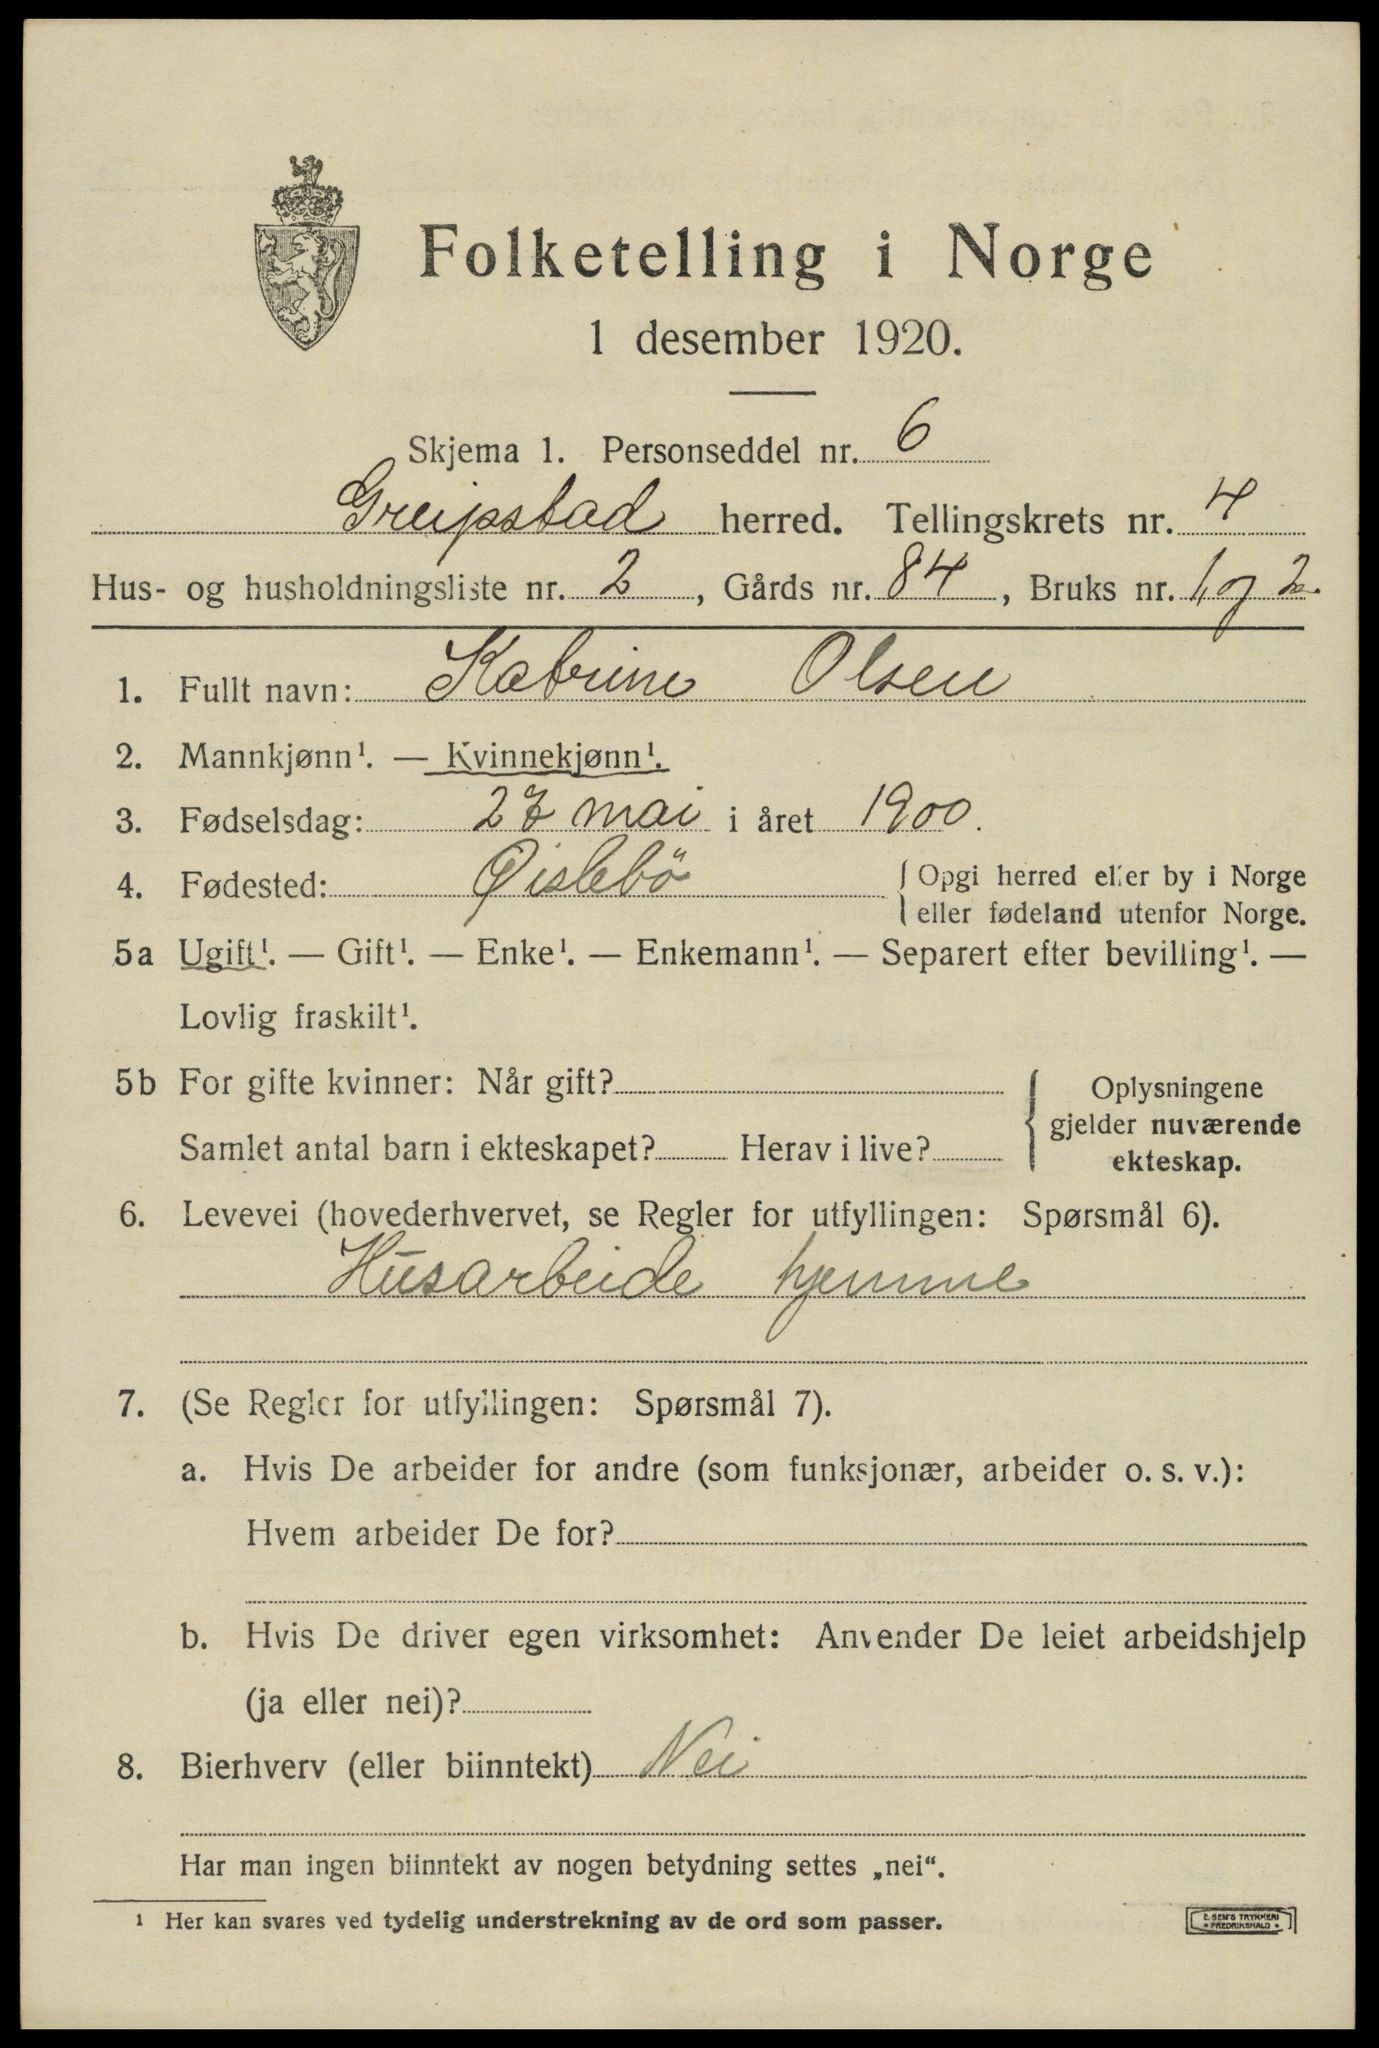 Folketelling i Norge
1 desember 1920.
Skjema 1. Personseddel nr. 6
Greipstad herred. Tellingskrets nr. 4
Hus- og husholdningsliste nr. 2, Gårds nr. 84, Bruks nr. 1, og 2.
1. Fullt navn: Katrine Olsen
2. Mannkjønn¹. — Kvinnekjønn¹.
3. Fødselsdag: 27 mai i året 1900.
4. Fødested: Øislebö { Opgi herred eller by i Norge
eller fødeland utenfor Norge.
5a Ugift¹. — Gift¹. — Enke¹. — Enkemann¹. — Separert efter bevilling¹. —
Lovlig fraskilt¹.
5b For gifte kvinner: Når gift? { Oplysningene
gjelder nuværende
Samlet antal barn i ekteskapet? Herav i live? ekteskap.
6. Levevei (hovederhvervet, se Regler for utfyllingen: Spørsmål 6).
Husarbeide hjemme
7. (Se Regler for utfyllingen: Spørsmål 7).
a. Hvis De arbeider for andre (som funksjonær, arbeider o. s. v.):
Hvem arbeider De for?
b. Hvis De driver egen virksomhet: Anvender De leiet arbeidshjelp
(ja eller nei)?
8. Bierhverv (eller biinntekt) Nei
Har man ingen biinntekt av nogen betydning settes „nei“.
¹ Her kan svares ved tydelig understrekning av de ord som passer.
E. SEM'S TRYKKERI
• FREDRIKSHALD •